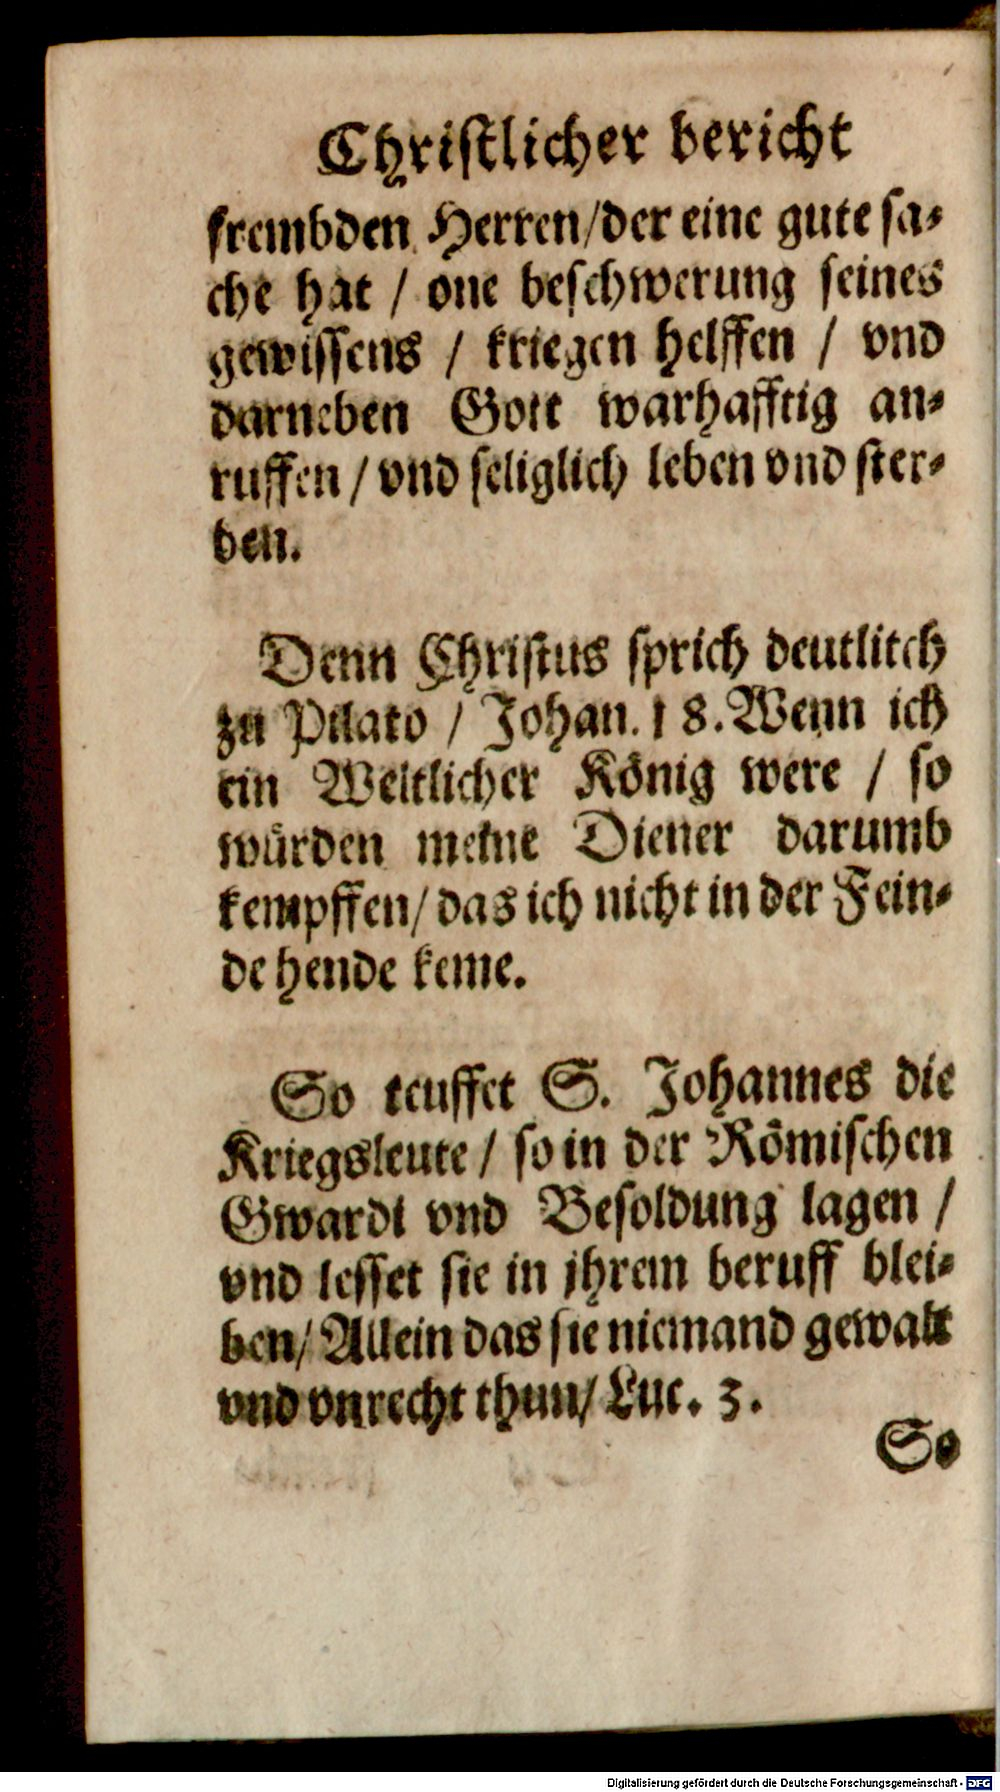 Christlicher bericht
frembden Herren/der eine gute sa⸗
che hat / one beschwerung seines
gewissens / kriegen helffen / vnd
darneben Gott warhafftig an⸗
ruffen / vnd seliglich leben vnd ster⸗
ben.
Denn Christus sprich deutlitch
zu Pilato / Johan. 18. Wenn ich
ein Weltlicher König were / so
würden meine Diener darumb
kempffen/ das ich nicht in der Fein⸗
de hende keme.
So teuffet S. Johannes die
Kriegsleute / so in der Römischen
Gwardi vnd Besoldung lagen /
vnd lesset sie in jhrem beruff blei⸗
ben/ Allein das sie niemand gewalt
vnd vnrecht thun/ Luc. 3.
So
Digitalisierung gefördert durch die Deutsche Forschungsgemeinschaft - DFG